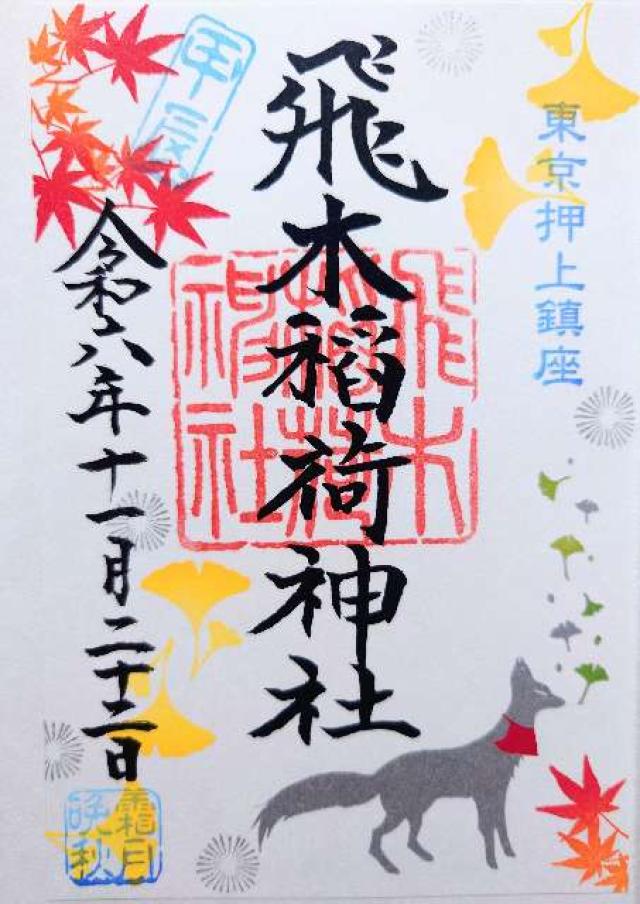 東京押上鎮座
飛木稲荷神社
飛木
稲荷
神社
甲辰
令和六年十一月二十二日
霜月
晩秋